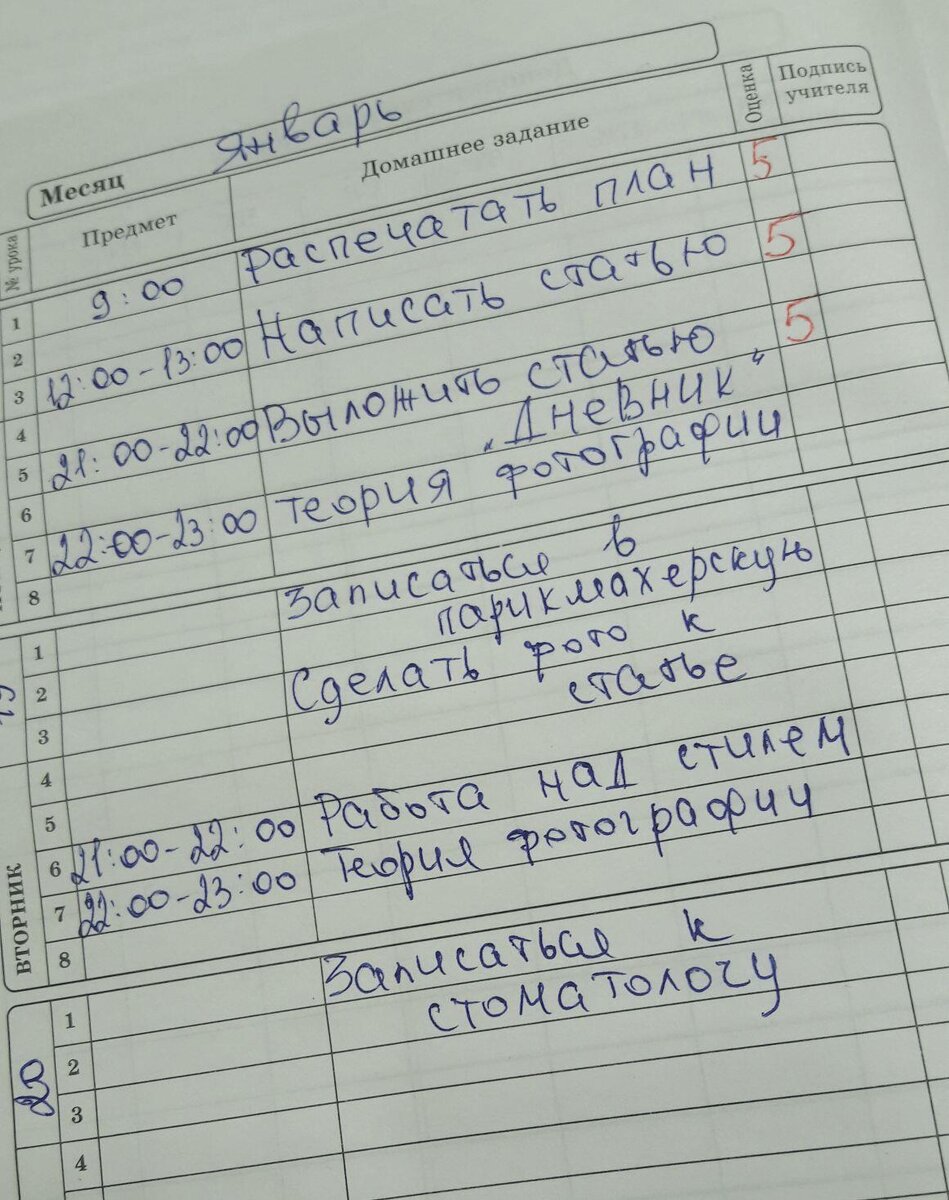 Месяц январь
№ урока Предмет Домашнее задание Оценка Подпись учителя
1 9:00 Распечатать план 5
2
3 12:00-13:00 Написать статью 5
4
5 21:00-22:00 Выложить статью 5
6 „Дневник"
7 22:00-23:00 теория фотографии
8
19 ВТОРНИК
1 Записаться в
2 парикмахерскую
3 Сделать фото к
4 статье
5
6 21:00-22:00 Работа над стилем
7 22:00-23:00 Теория фотографии
8
1 Записаться к
2 стоматологу
3
4